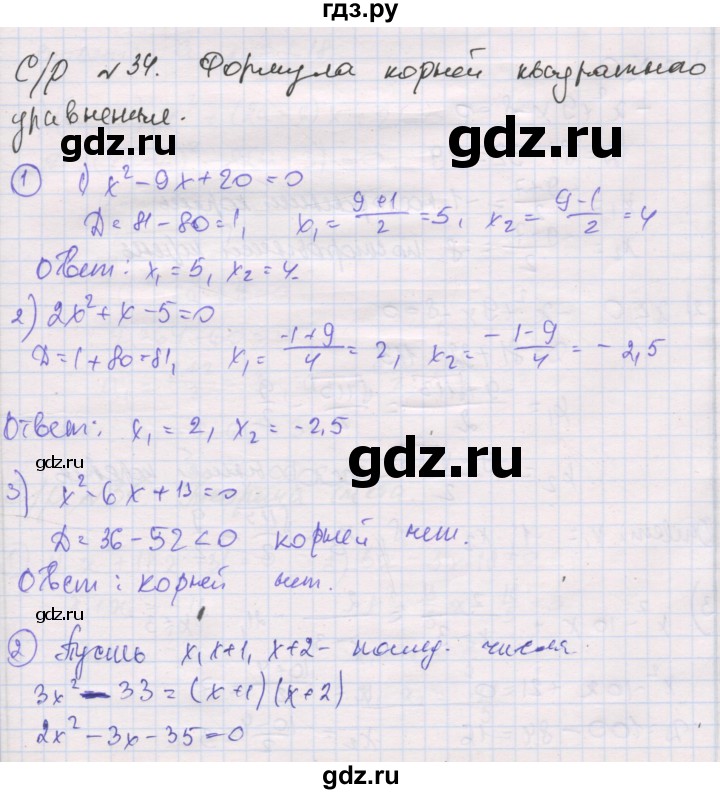 гдз.ру
С/р №34. Формула корней квадратного
уравнения.
gdz.ru gdz.ru
1 1) x² - 9x + 20 = 0
D = 81 - 80 = 1, x₁ = (9+1)/2 = 5, x₂ = (9-1)/2 = 4
Ответ: x₁ = 5, x₂ = 4.
2) 2x² + x - 5 = 0
D = 1 + 80 = 81, x₁ = (-1+9)/4 = 2, x₂ = (-1-9)/4 = -2,5
gdz.ru gdz.ru
Ответ: x₁ = 2, x₂ = -2,5
gdz.ru gdz.ru
3) x² - 6x + 13 = 0
D = 36 - 52 < 0 корней нет.
Ответ: корней нет.
gdz.ru gdz.ru
2 Пусть x, x+1, x+2 - послед. числа.
3x² - 33 = (x+1)(x+2)
2x² - 3x - 35 = 0
gdz.ru